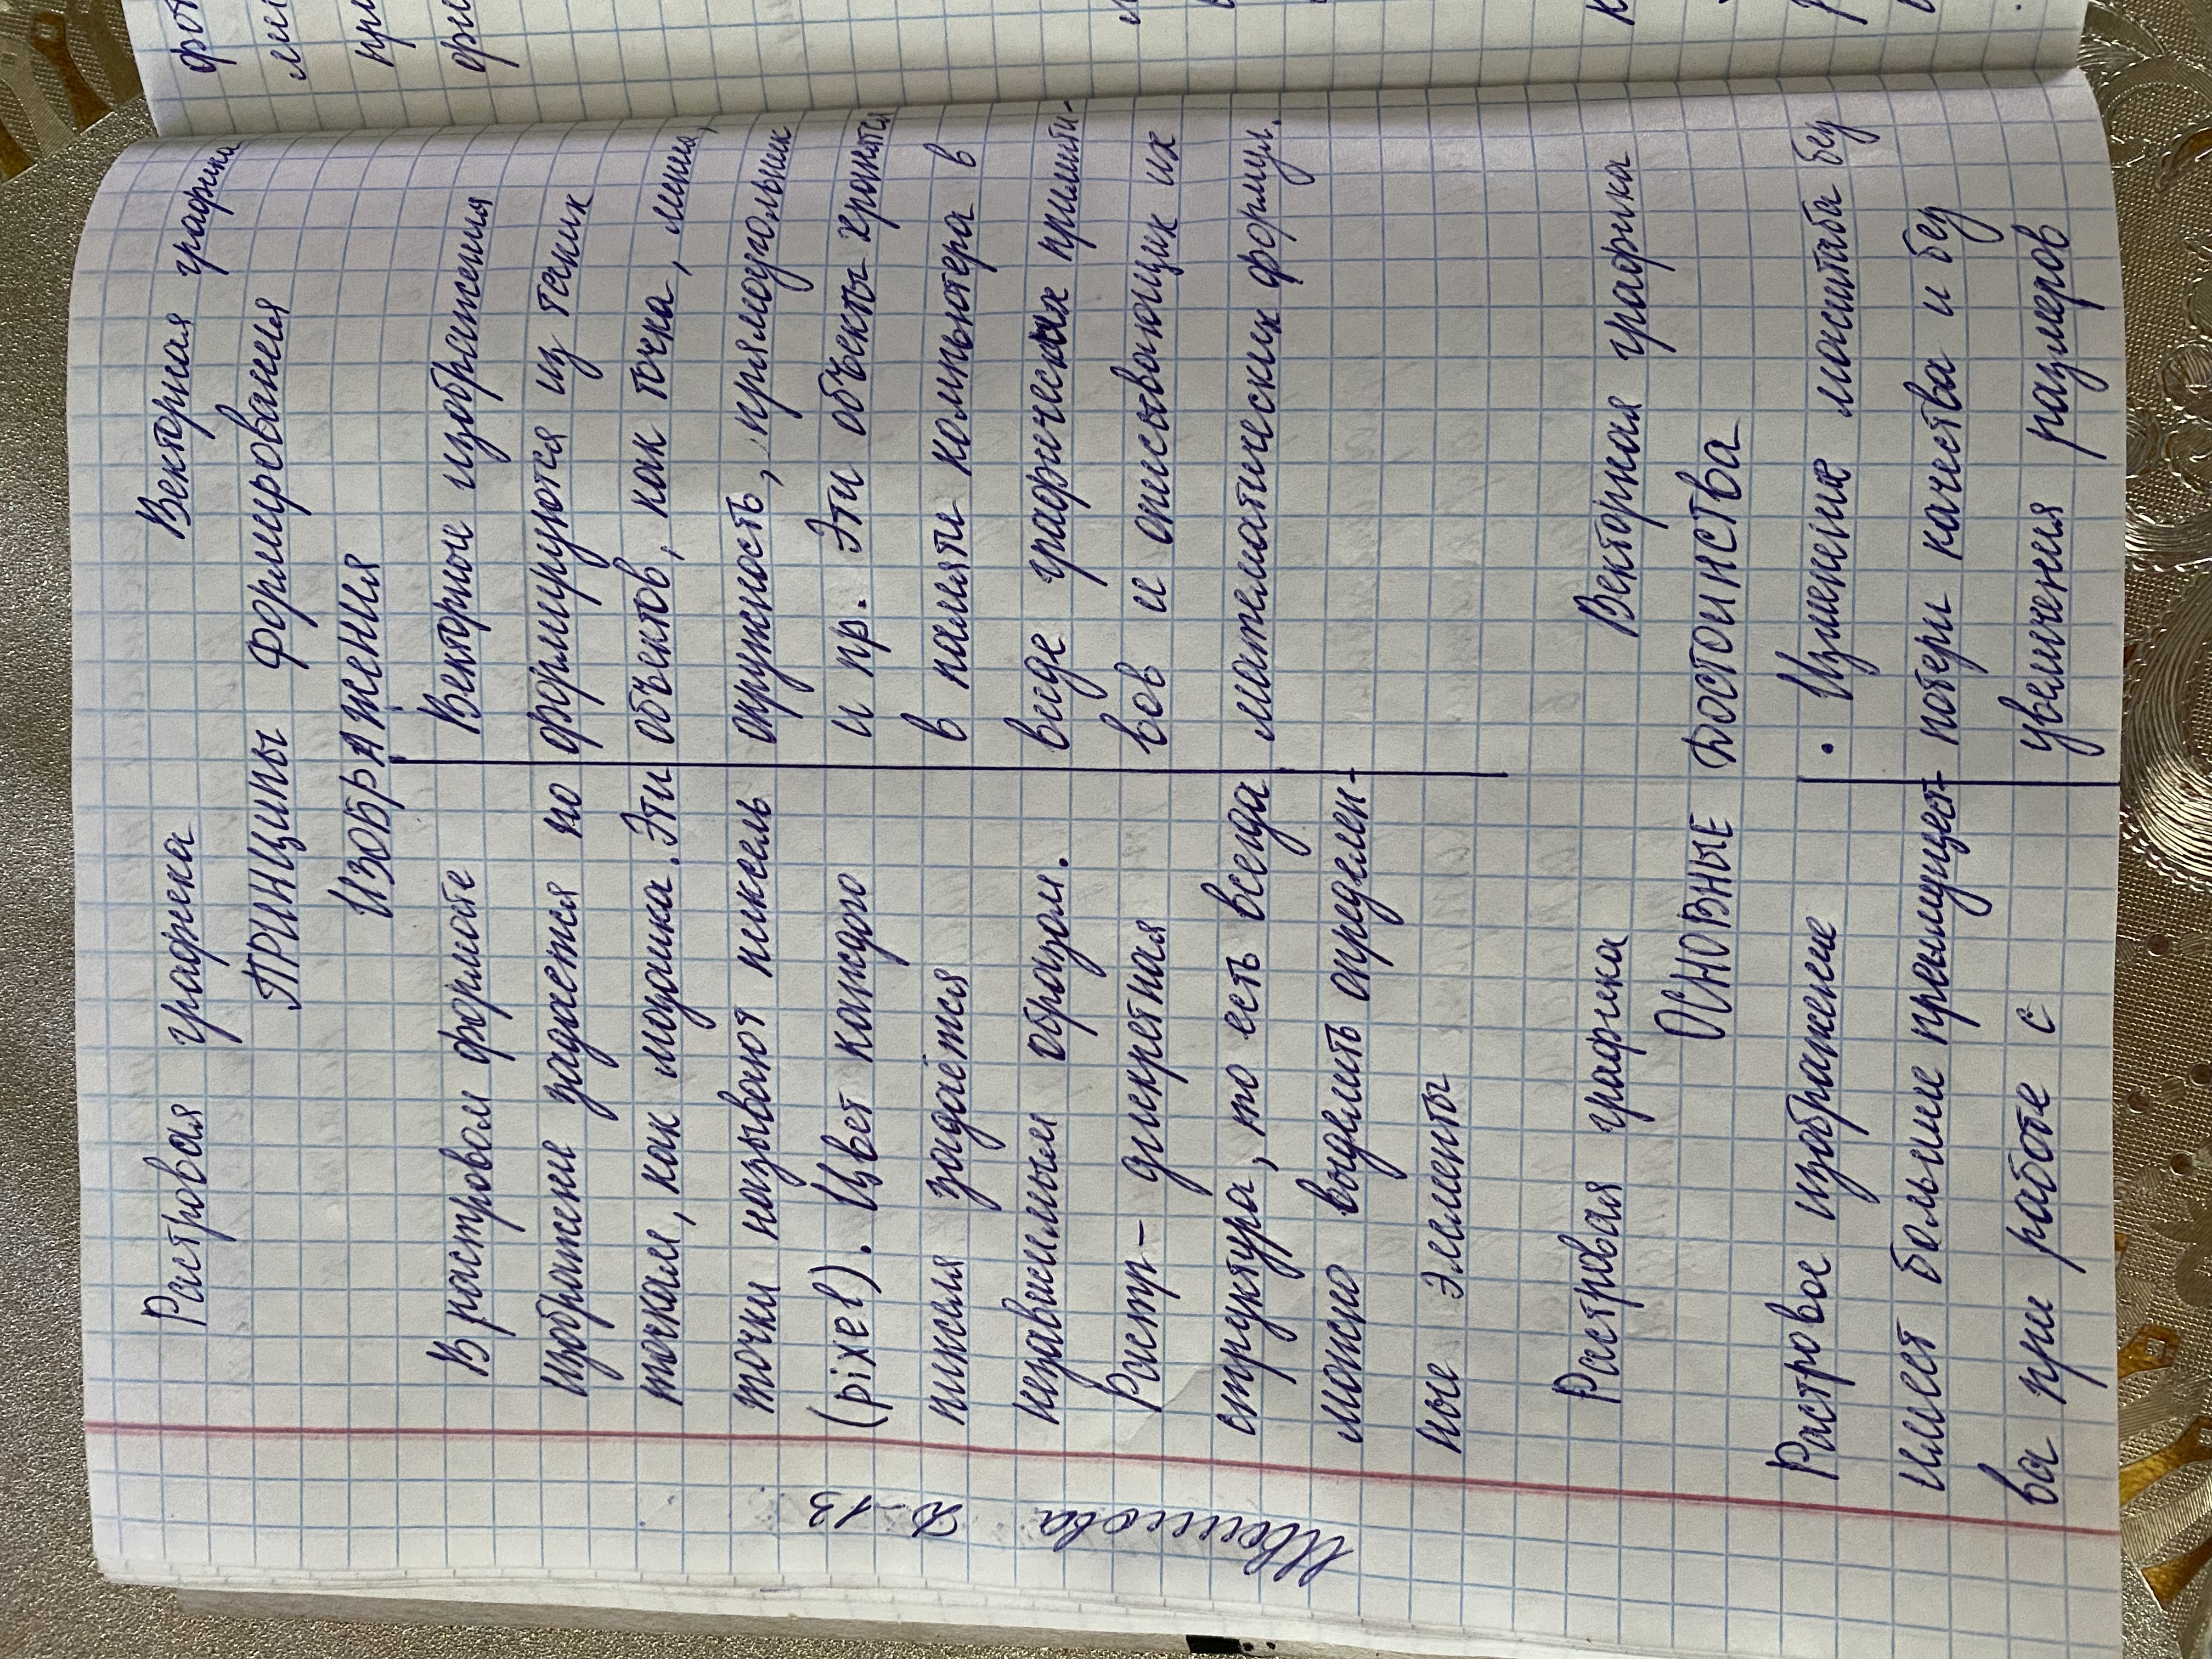 Растровая графика Векторная графика
ПРИНЦИПЫ ФОРМИРОВАНИЯ
ИЗОБРАЖЕНИЯ
В растровом формате
изображение задается по
точкам, как мозаика. Эти
точки называют пиксель
(pixel). Цвет каждого
пикселя задаётся
независимым образом.
Растр - дискретная
структура, то есть всегда
можно выделить определен-
ные элементы
Векторные изображения
формируются из таких
объектов, как точка, линия,
окружность, прямоугольник
и пр. Эти объекты хранятся
в памяти компьютера в
виде графических примити-
вов и описывающих их
математических формул.
Растровая графика Векторная графика
ОСНОВНЫЕ ДОСТОИНСТВА
Растровое изображение
имеет больше преимущест-
ва при работе с
• Изменение масштаба без
потери качества и без
увеличения размеров
Д-13